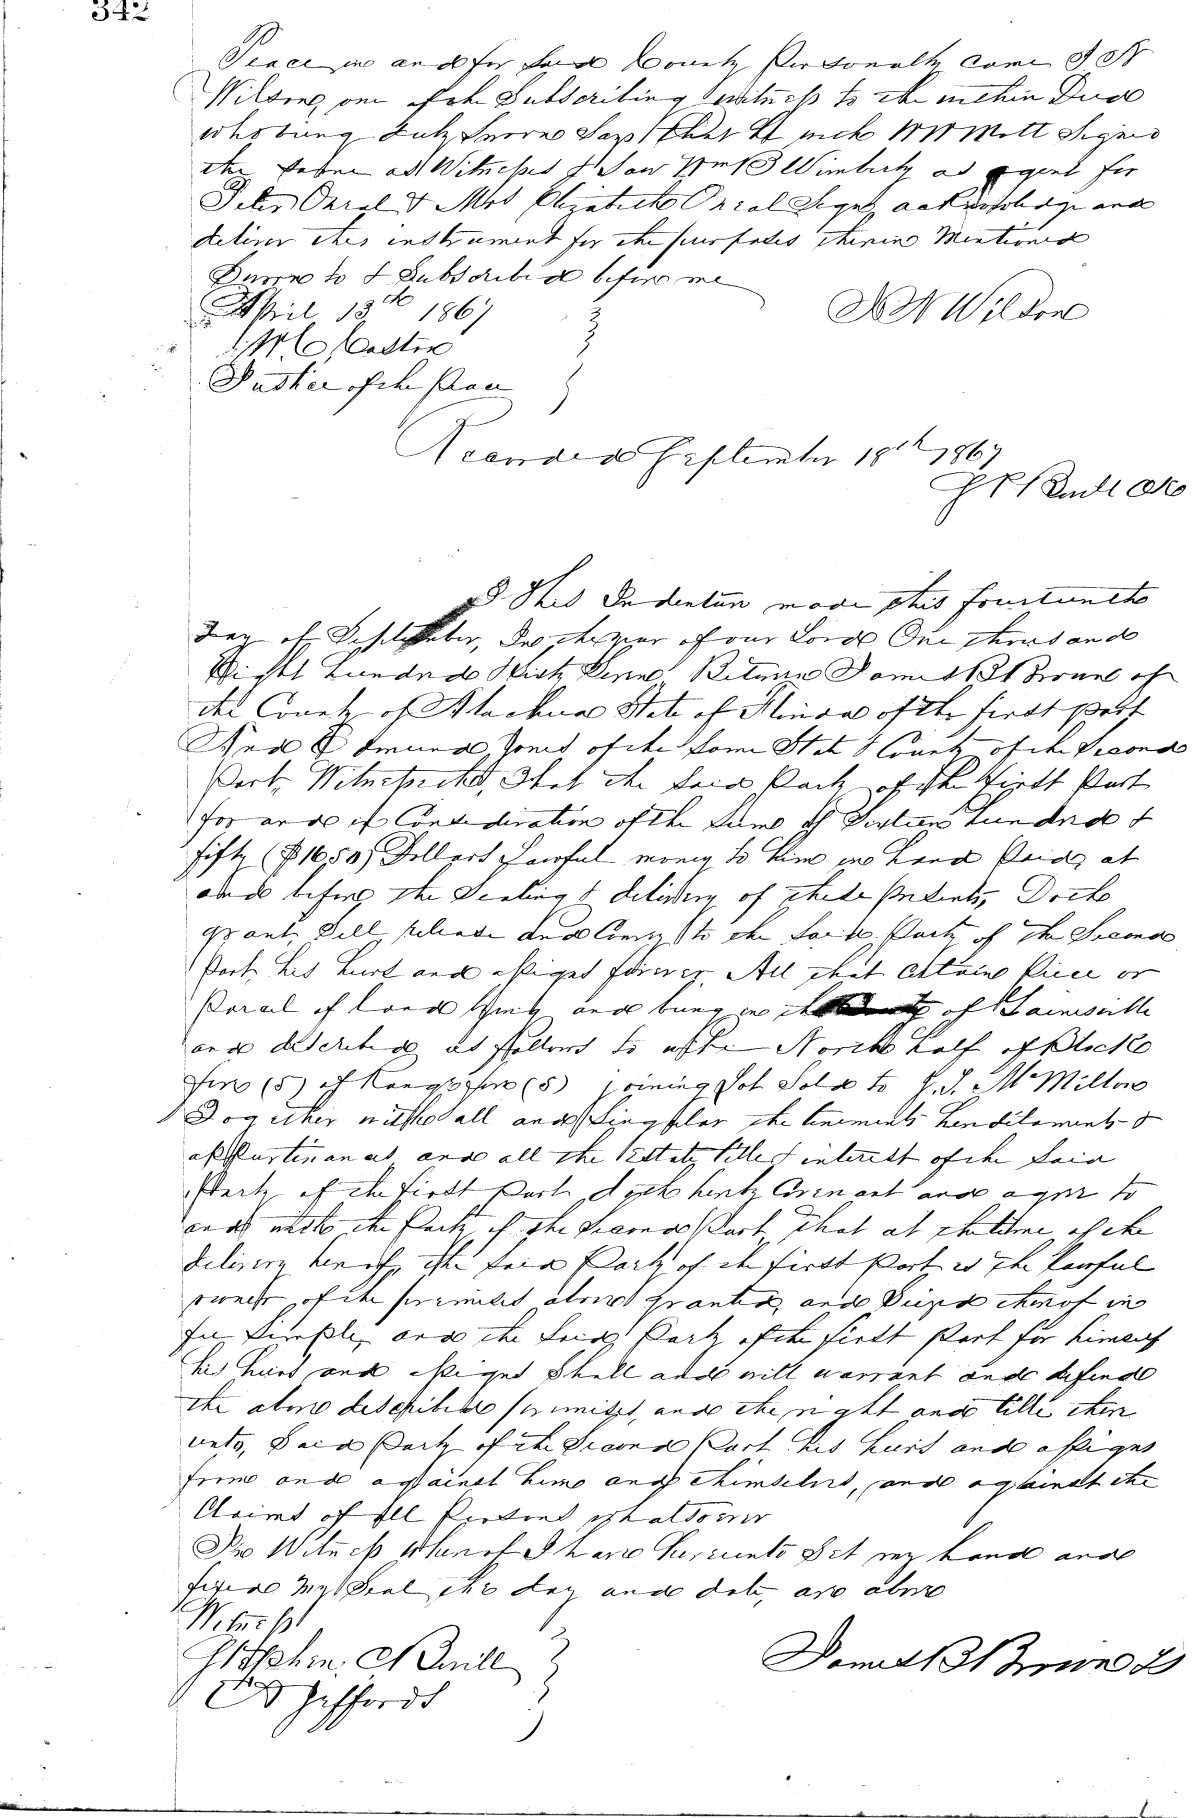 342
Peace in and for said County Personally came J N
Wilson, one of the Subscribing witness to the within Deed
who being duly Sworn Says that he with W W Mott Signed
the same as Witnesses & Saw Wm B Wimberly as agent for
Peter Oneal & Mrs Elizabeth Oneal Sign, acknowledge and
deliver this instrument for the purposes therein Mentioned
Sworn to & Subscribed before me
April 13th 1867
J N Wilson
Justice of the Peace
Recorded September 18th 1867
This Indenture made this fourteenth
Day of September, In the year of our Lord One thousand
Eight hundred Sixty Seven, Between James B Brown of
the County of Alachua State of Florida of the first part
And Edmund Jones of the Same State & County of the Second
Part, Witnesseth, That the Said Party of the first Part
for and in Consideration of the Sum of Sixteen hundred &
fifty ($1650) Dollars Lawful money to him in hand Paid, at
and before the Sealing & delivery of these presents, Doth
grant, Sell, release and Convey to the Said Party of the Second
Part, his heirs and assigns forever, All that certain Piece or
Parcel of Land lying and being in the of Gainesville
and described as follows to wit North half of Block
five (5) of Range five (5) joining Lot Sold to J. J. McMillon
Together with all and Singular the tenements hereditaments &
appurtenances, and all the Estate, title & interest of the Said
Party of the first Part, doth hereby Covenant and agree to
and with the Party of the Second Part, that at the time of the
delivery hereof, the Said Party of the first Part is the lawful
owner of the premises above granted, and Seized thereof in
fee Simple, and the Said Party of the first Part for himself
his heirs and assigns Shall and will warrant and defend
the above described premises, and the right and title there
unto, Said Party of the Second Part his heirs and assigns
from and against him and themselves, and against the
Claims of all Persons whatsoever
In Witness Whereof I have hereunto Set my hand and
fixed My Seal the day and date, as above
Witness
James B Brown LS
Stephen
Jeffords